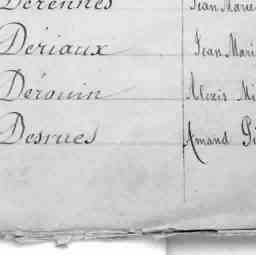 Derennes Jean Marie
Dériaux Jean Mari
Dérouin Alexis Mi
Desrues Amand Pi